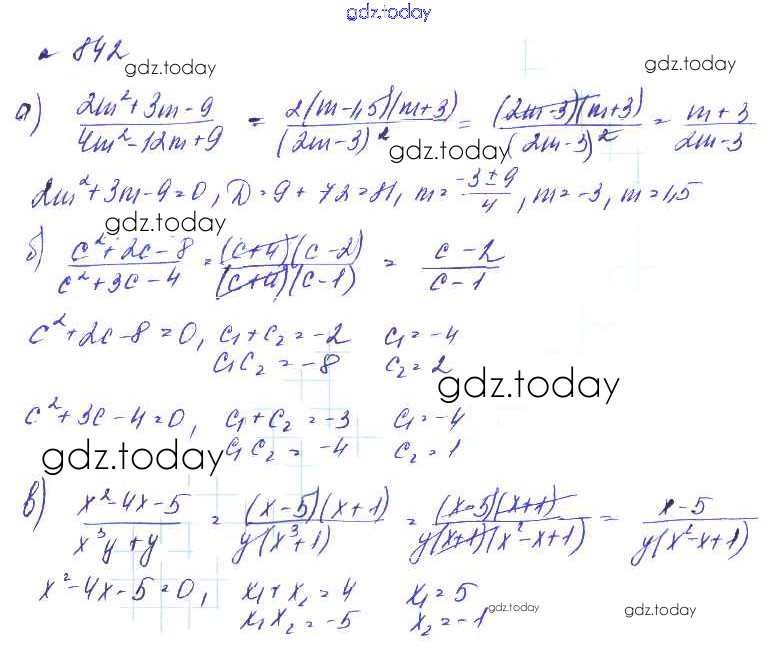 gdz.today
№ 842
gdz.today gdz.today
а) (2m²+3m-9)/(4m²-12m+9) = 2(m-1,5)(m+3)/(2m-3)² = (2m-3)(m+3)/(2m-3)² = (m+3)/(2m-3)
gdz.today
2m²+3m-9=0, D=9+72=81, m=(-3±9)/4, m=-3, m=1,5
gdz.today
б) (c²+2c-8)/(c²+3c-4) = (c+4)(c-2)/(c+4)(c-1) = (c-2)/(c-1)
c²+2c-8=0, c₁+c₂=-2 c₁=-4
c₁c₂=-8 c₂=2
gdz.today
c²+3c-4=0, c₁+c₂=-3 c₁=-4
c₁c₂=-4 c₂=1
gdz.today
в) (x²-4x-5)/(x³y+y) = (x-5)(x+1)/y(x³+1) = (x-5)(x+1)/y(x+1)(x²-x+1) = (x-5)/y(x²-x+1)
x²-4x-5=0, x₁+x₂=4 x₁=5
x₁x₂=-5 x₂=-1
gdz.today gdz.today